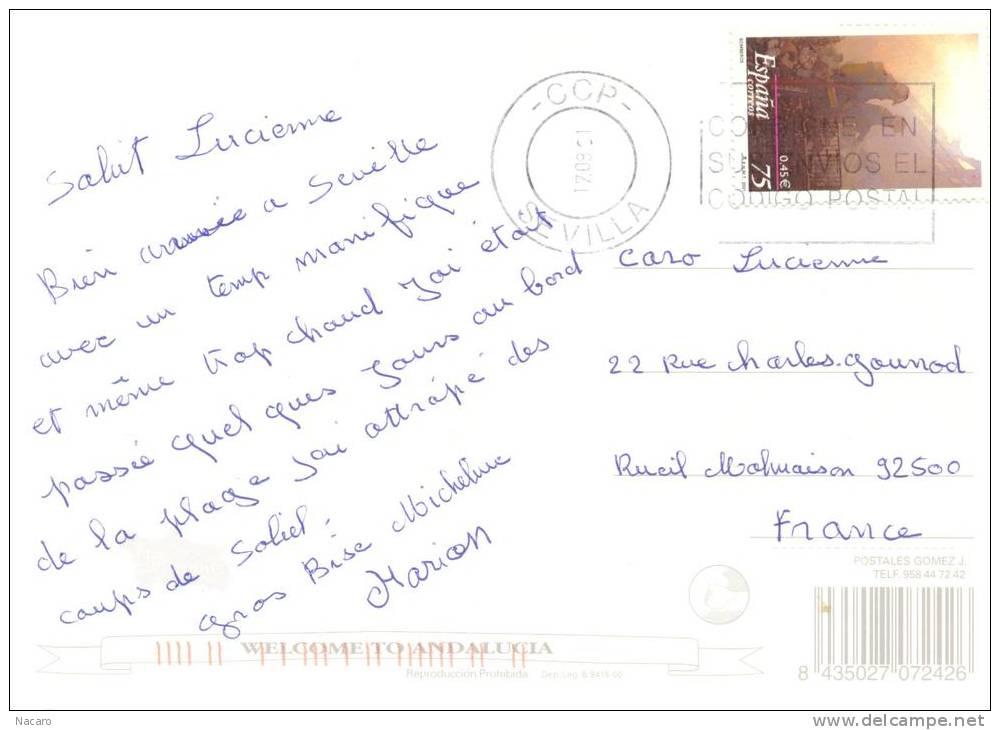 Salut Lucienne
Bien arrivée a Seville
avec un temp manifique
et même trop chaud J'ai était
passée quelques Jours au bord
de la plage J'ai attrapé des
coups de Soliel.
gros Bise Micheline
Marion
España
correos
BOMBEROS
0,45€
75
-CCP-
17.09.01
SEVILLA
CONSIGNE EN
SUS ENVIOS EL
CODIGO POSTAL
Caro Lucienne
22 Rue Charles.gounod
Rueil Malmaison 92500
France
POSTALES GOMEZ J.
TELF. 958 44 72 42
8 435027 072426
WELCOME TO ANDALUCIA
Reproducción Prohibida Dep. Leg. B 9415-00
Nacaro
delcampe.net